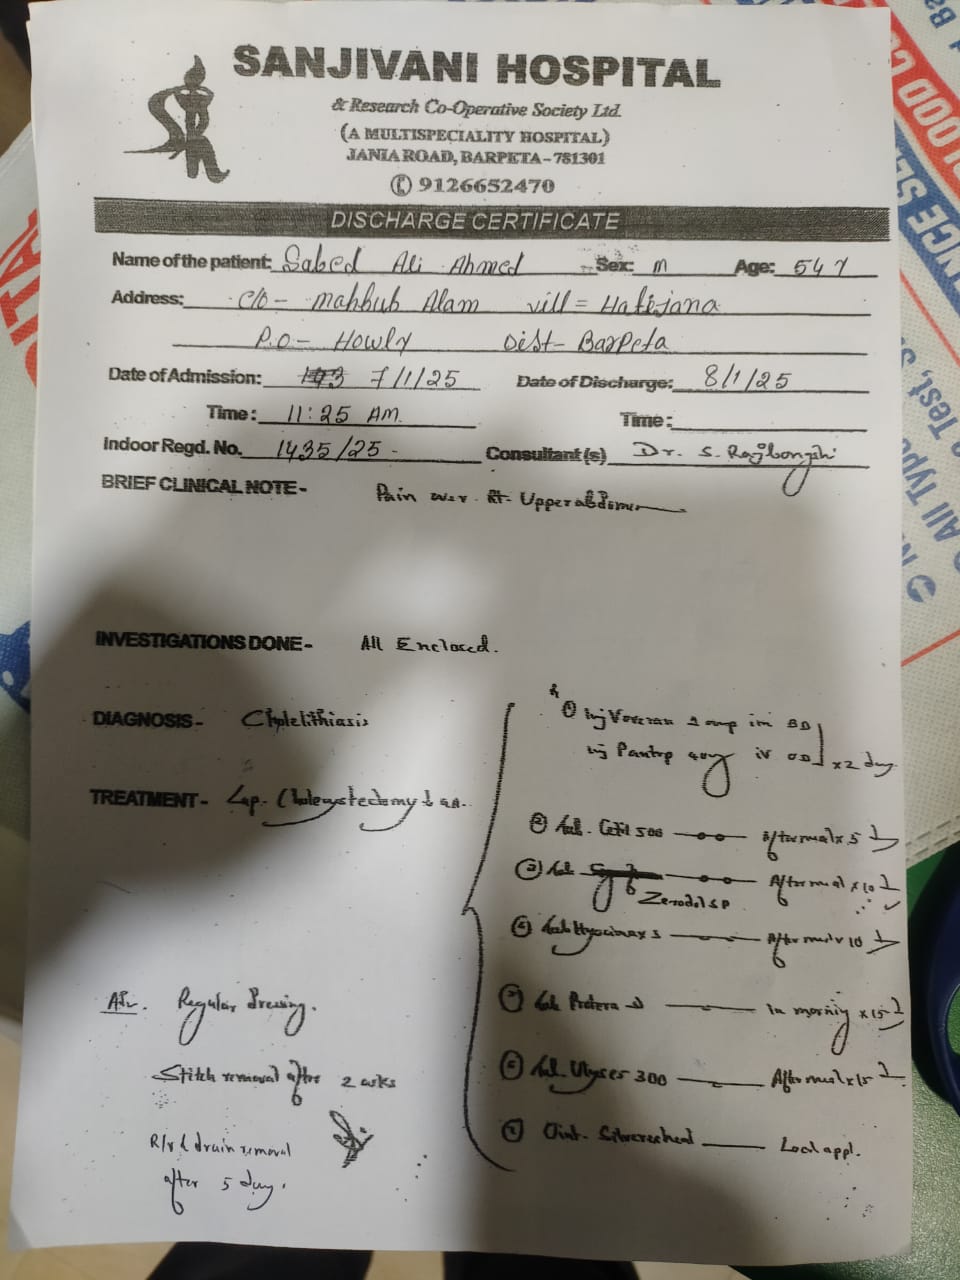 SANJIVANI HOSPITAL
& Research Co-Operative Society Ltd.
(A MULTISPECIALITY HOSPITAL)
JANIA ROAD, BARPETA-781301
9126652470
DISCHARGE CERTIFICATE
Name of the patient: Sabed Ali Ahmed Sex: M Age: 54 Y
Address: C/o - Mahbub Alam Vill = Hatijana
P.O - Howly Dist - Barpeta
Date of Admission: 7/1/25 Date of Discharge: 8/1/25
Time: 11:25 AM. Time:
Indoor Regd. No. 1435/25 - Consultant(s) Dr. S. Rajbongshi
BRIEF CLINICAL NOTE - Pain over Rt. Upper abdomen
INVESTIGATIONS DONE - All Enclosed.
DIAGNOSIS - Cholelithiasis
TREATMENT - Lap. Cholecystectomy GA.
① inj Voveran 1 amp im BD
inj Pantop 40mg iv OD x2 day
② Tab. Cetil 500 After meal x 5
③ Tab Zerodol SP After meal x 10
④ Tab Hyocimax S After meal x 10
Tab in morning x 15
Tab. 300 After meal x 15
Oint. Local appl.
Adv. Regular Dressing.
Stitch removal after 2 wks
drain removal
after 5 day.
BLOOD
All Type
Test, S